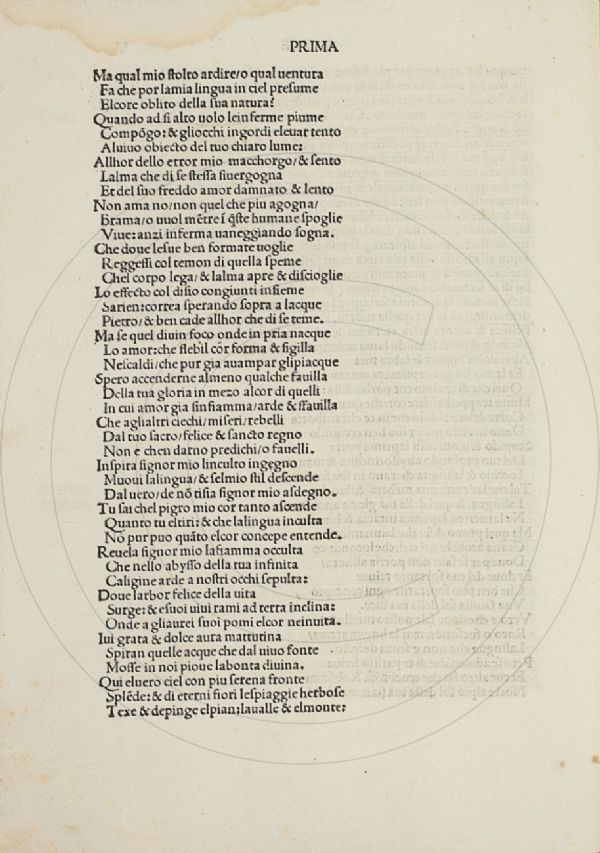 PRIMA
Ma qual mio ſtolto ardire/o qual uentura
Fa che por lamia lingua in ciel preſume
Elcore oblito della ſua natura?
Quando ad ſi alto uolo lein ferme piume
Compōgo: & gliocchi ingordi eleuar tento
Aluiuo obiecto del tuo chiaro lume:
Allhor dello error mio macchorgo/& ſento
Lalma che di ſe ſteſſa ſiuergogna
Et del ſuo freddo amor damnato & lento
Non ama no/non quel che piu agogna/
Brama/o uuol mētre ſ q̄ſte humane ſpoglie
Viue:anzi inferma uaneggiando ſogna.
Che doue leſue ben formate uoglie
Reggeſſi col temon di quella ſpeme
Chel corpo lega/& lalma apre & diſcioglie
Lo effecto col diſio congiunti inſieme
Sarien:correa ſperando ſopra a lacque
Pietro/& ben cade allhor che di ſe teme.
Ma ſe quel diuin foco onde in pria nacque
Lo amor:che flebil cor forma & ſigilla
Neſcaldi/che pur gia auampar glipiacque
Spero accenderne almeno qualche fauilla
Della tua gloria in mezo alcor di quelli
In cui amor gia ſinfiamma/arde & ſfauilla
Che aglialtri ciechi/miſeri/rebelli
Dal tuo ſacro/felice & ſancto regno
Non e chen darno predichi/o fauelli.
Inſpira ſignor mio linculto ingegno
Muoui lalingua/& ſelmio ſtil deſcende
Dal uero/de nō tiſia ſignor mio aſdegno.
Tu ſai chel pigro mio cor tanto aſcende
Quanto tu eltiri: & che lalingua inculta
Nō pur puo quāto elcor concepe entende.
Reuela ſignor mio lafiamma occulta
Che nello abyſſo della tua infinita
Caligine arde a noſtri occhi ſepulta:
Doue larbor felice della uita
Surge: & eſuoi uiui rami ad terra inclina:
Onde a gliaurei ſuoi pomi elcor neinuita.
Iui grata & dolce aura mattutina
Spiran quelle acque che dal uiuo fonte
Moſſe in noi pioue labonta diuina.
Qui eluero ciel con piu ſerena fronte
Splēde: & di eterni fiori leſpiaggie herboſe
Texe & depinge elpian;laualle & elmonte: